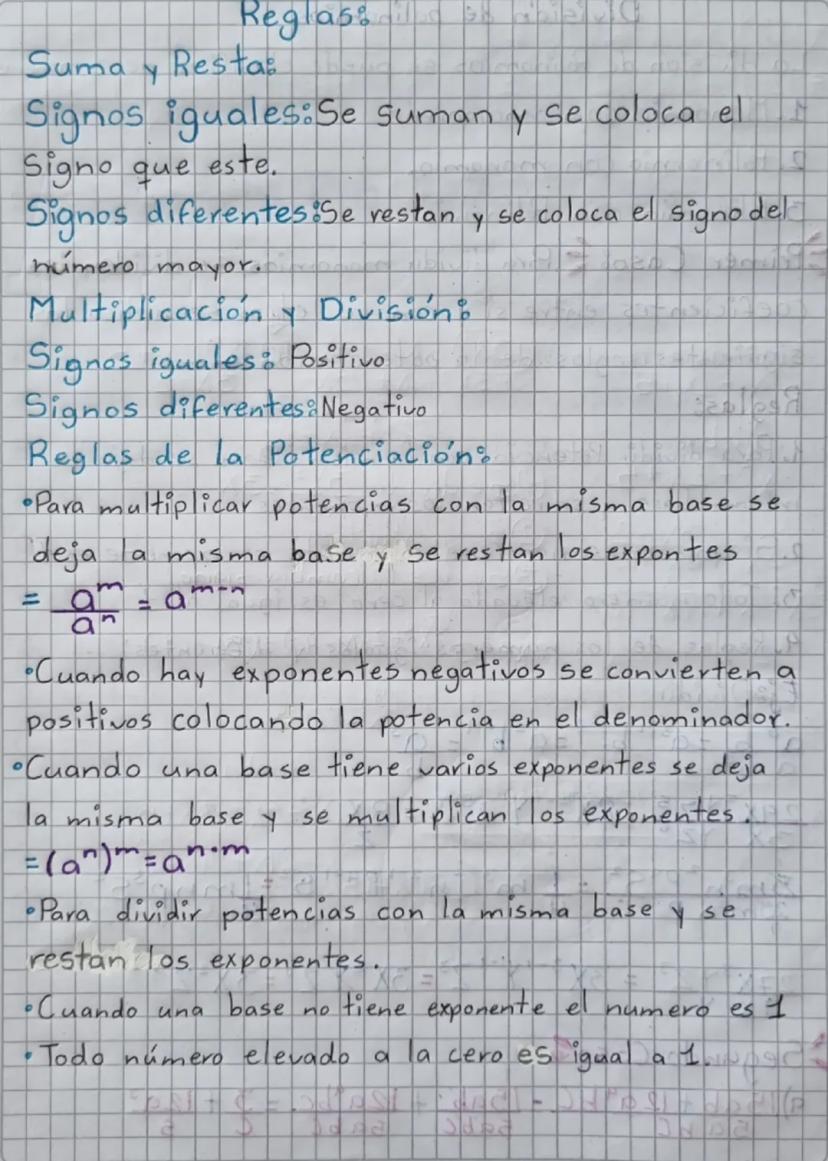 Reglas:
Suma y Resta:
Signos iguales: Se suman y se coloca el
signo que este.
Signos diferentes: Se restan y se coloca el signo del
número mayor.
Multiplicación y División:
Signos iguales: Positivo
Signos diferentes: Negativo
Reglas de la Potenciación:
•Para multiplicar potencias con la misma base se
deja la misma base y se restan los expontes
= a^m/a^n = a^m-n
•Cuando hay exponentes negativos se convierten a
positivos colocando la potencia en el denominador.
•Cuando una base tiene varios exponentes se deja
la misma base y se multiplican los exponentes.
=(a^n)^m = a^n·m
•Para dividir potencias con la misma base y se
restan los exponentes.
•Cuando una base no tiene exponente el numero es 1
•Todo número elevado a la cero es igual a 1.